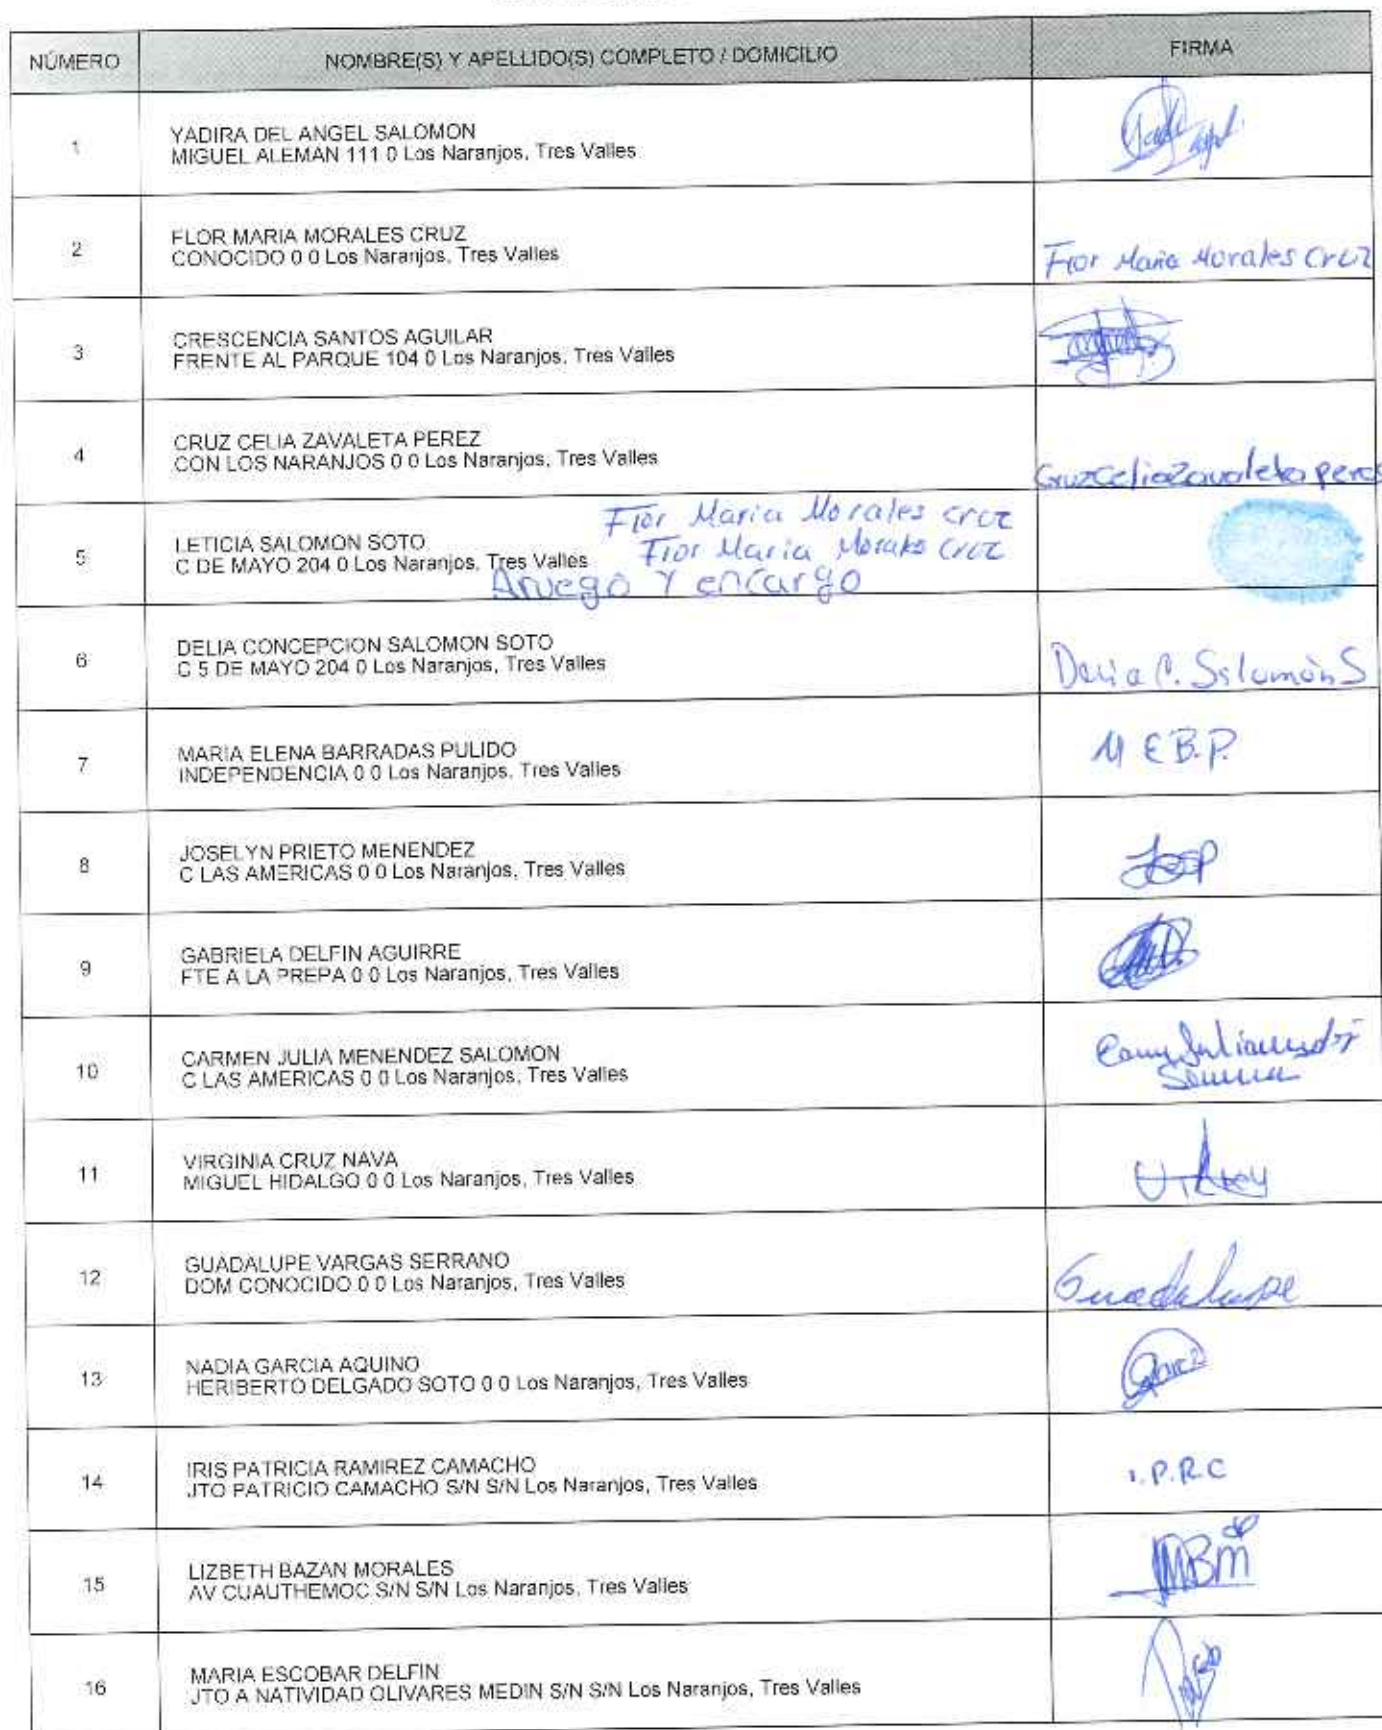 NÚMERO NOMBRE(S) Y APELLIDO(S) COMPLETO / DOMICILIO FIRMA
1 YADIRA DEL ANGEL SALOMON
MIGUEL ALEMAN 111 0 Los Naranjos, Tres Valles
2 FLOR MARIA MORALES CRUZ
CONOCIDO 0 0 Los Naranjos, Tres Valles
Flor Maria Morales Cruz
3 CRESCENCIA SANTOS AGUILAR
FRENTE AL PARQUE 104 0 Los Naranjos, Tres Valles
4 CRUZ CELIA ZAVALETA PEREZ
CON LOS NARANJOS 0 0 Los Naranjos, Tres Valles
Cruz Celia Zavaleta peres
Flor Maria Morales cruz
5 LETICIA SALOMON SOTO
Flor Maria Morales Cruz
C DE MAYO 204 0 Los Naranjos, Tres Valles
Aruego Y encargo
6 DELIA CONCEPCION SALOMON SOTO
C 5 DE MAYO 204 0 Los Naranjos, Tres Valles
Delia C. Salomòn S
7 MARIA ELENA BARRADAS PULIDO
INDEPENDENCIA 0 0 Los Naranjos, Tres Valles
M E B.P.
8 JOSELYN PRIETO MENENDEZ
C LAS AMERICAS 0 0 Los Naranjos, Tres Valles
9 GABRIELA DELFIN AGUIRRE
FTE A LA PREPA 0 0 Los Naranjos, Tres Valles
10 CARMEN JULIA MENENDEZ SALOMON
C LAS AMERICAS 0 0 Los Naranjos, Tres Valles
11 VIRGINIA CRUZ NAVA
MIGUEL HIDALGO 0 0 Los Naranjos, Tres Valles
12 GUADALUPE VARGAS SERRANO
DOM CONOCIDO 0 0 Los Naranjos, Tres Valles
Guadalupe
13 NADIA GARCIA AQUINO
HERIBERTO DELGADO SOTO 0 0 Los Naranjos, Tres Valles
14 IRIS PATRICIA RAMIREZ CAMACHO
JTO PATRICIO CAMACHO S/N S/N Los Naranjos, Tres Valles
I.P.R.C
15 LIZBETH BAZAN MORALES
AV CUAUTHEMOC S/N S/N Los Naranjos, Tres Valles
16 MARIA ESCOBAR DELFIN
JTO A NATIVIDAD OLIVARES MEDIN S/N S/N Los Naranjos, Tres Valles